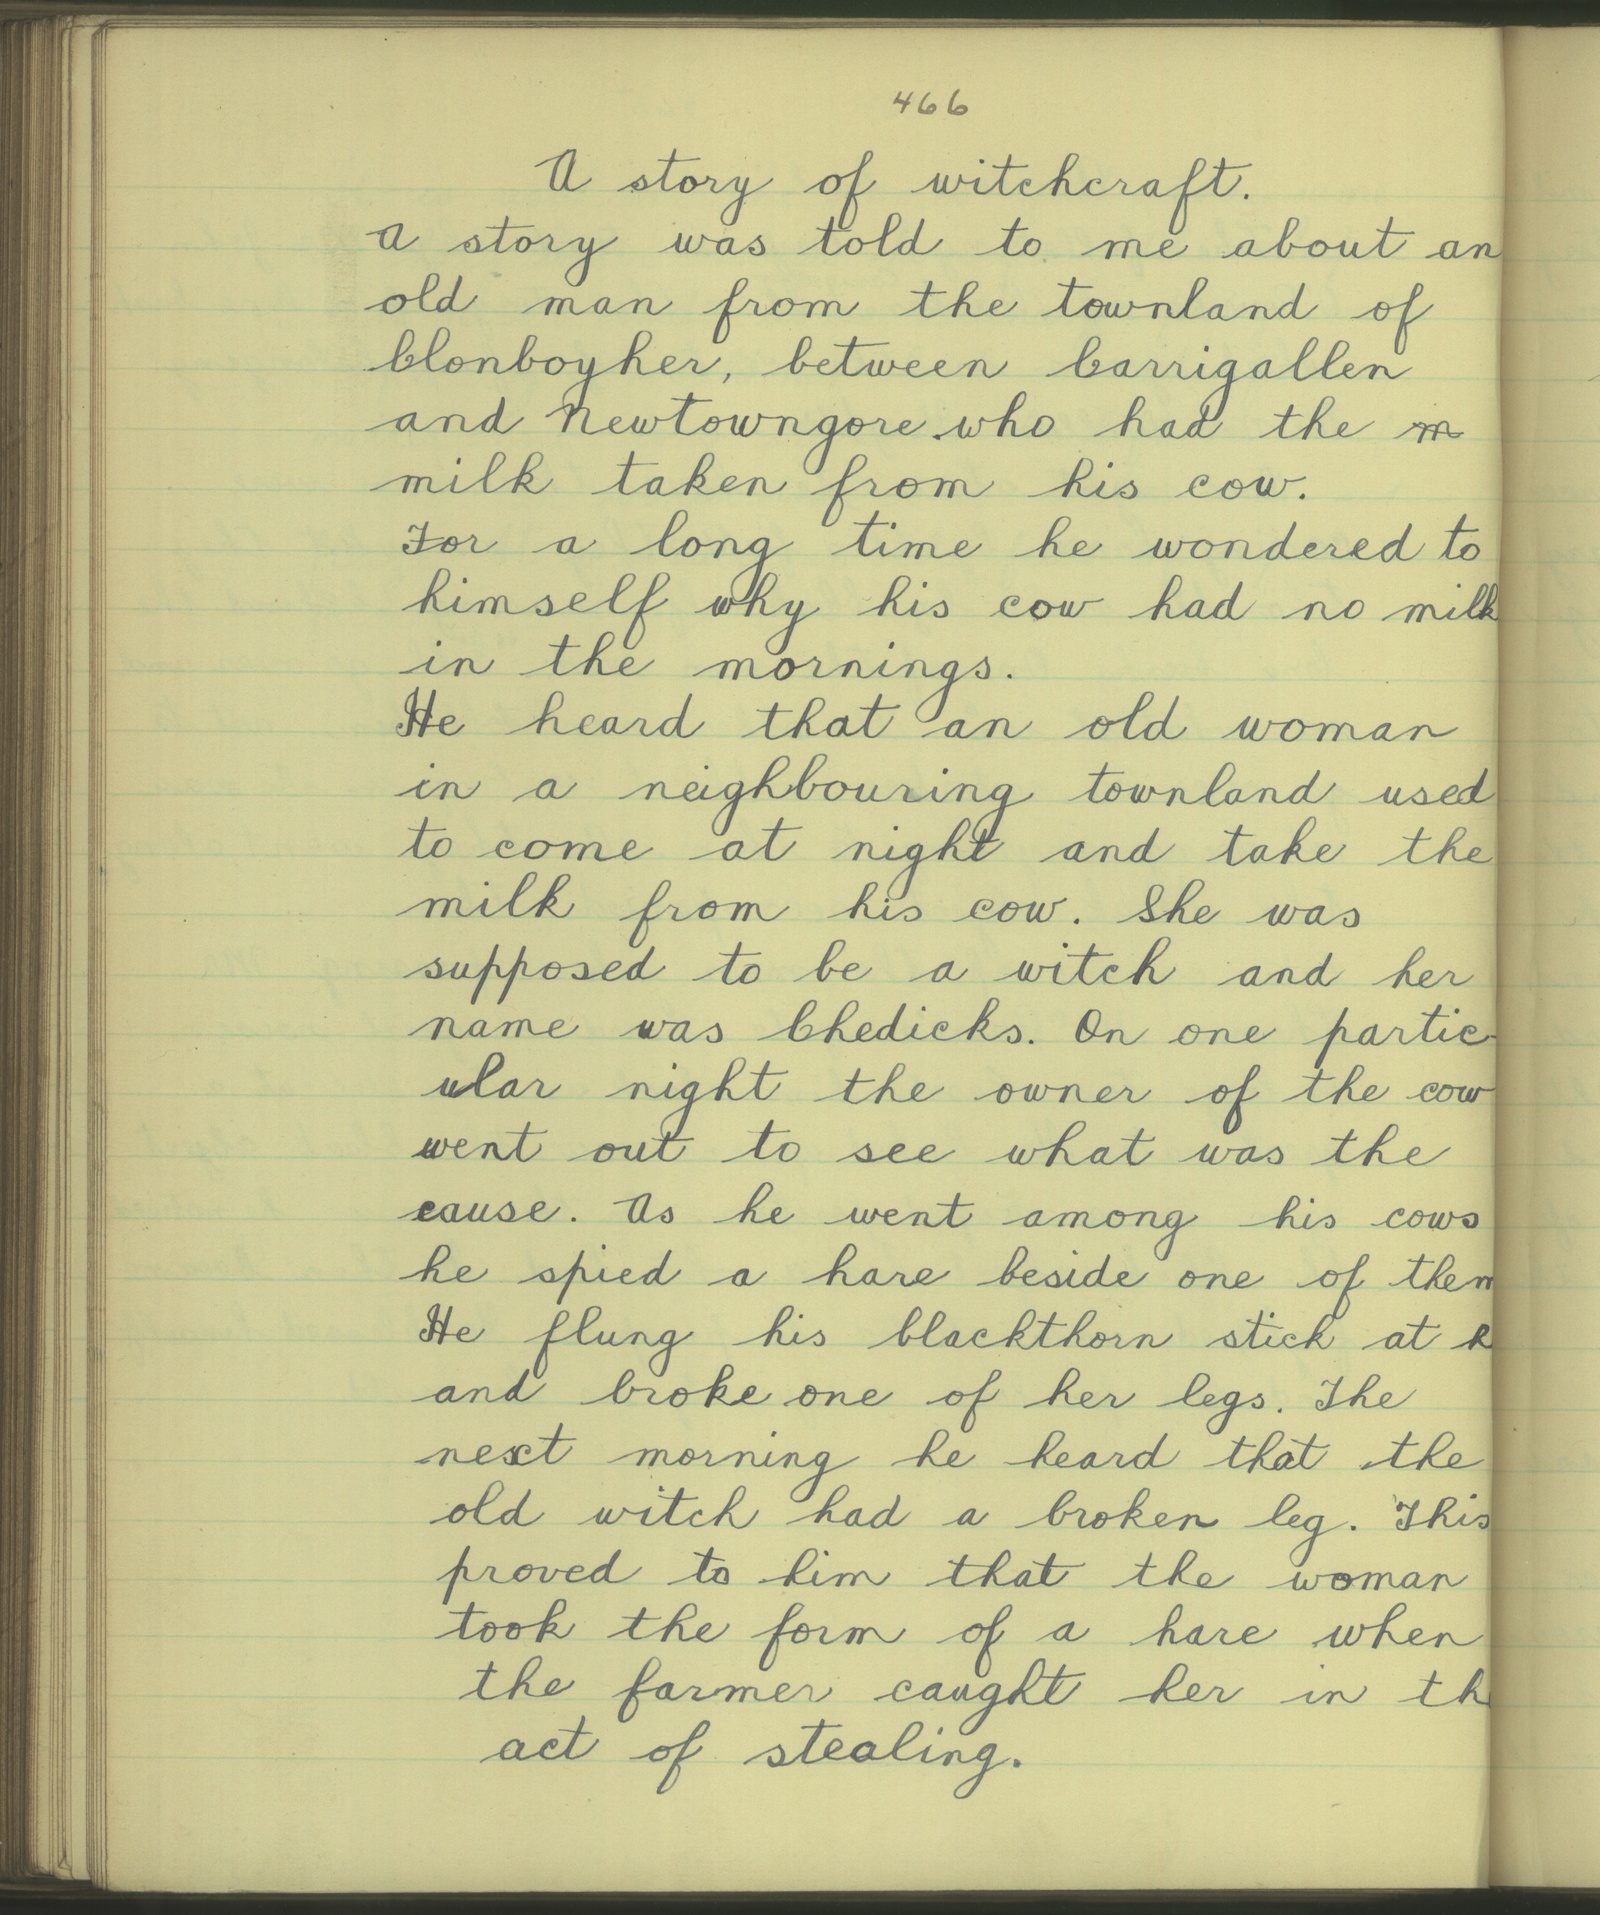 466
A story of witchcraft.
A story was told to me about an
old man from the townland of
Clonboyher, between Carrigallen
and Newtowngore who had the m
milk taken from his cow.
For a long time he wondered to
himself why his cow had no milk
in the mornings.
He heard that an old woman
in a neighbouring townland used
to come at night and take the
milk from his cow. She was
supposed to be a witch and her
name was Chedicks. On one partic-
ular night the owner of the cow
went out to see what was the
cause. As he went among his cows
he spied a hare beside one of them
He flung his blackthorn stick at h
and broke one of her legs. The
next morning he heard that the
old witch had a broken leg. This
proved to him that the woman
took the form of a hare when
the farmer caught her in th
act of stealing.